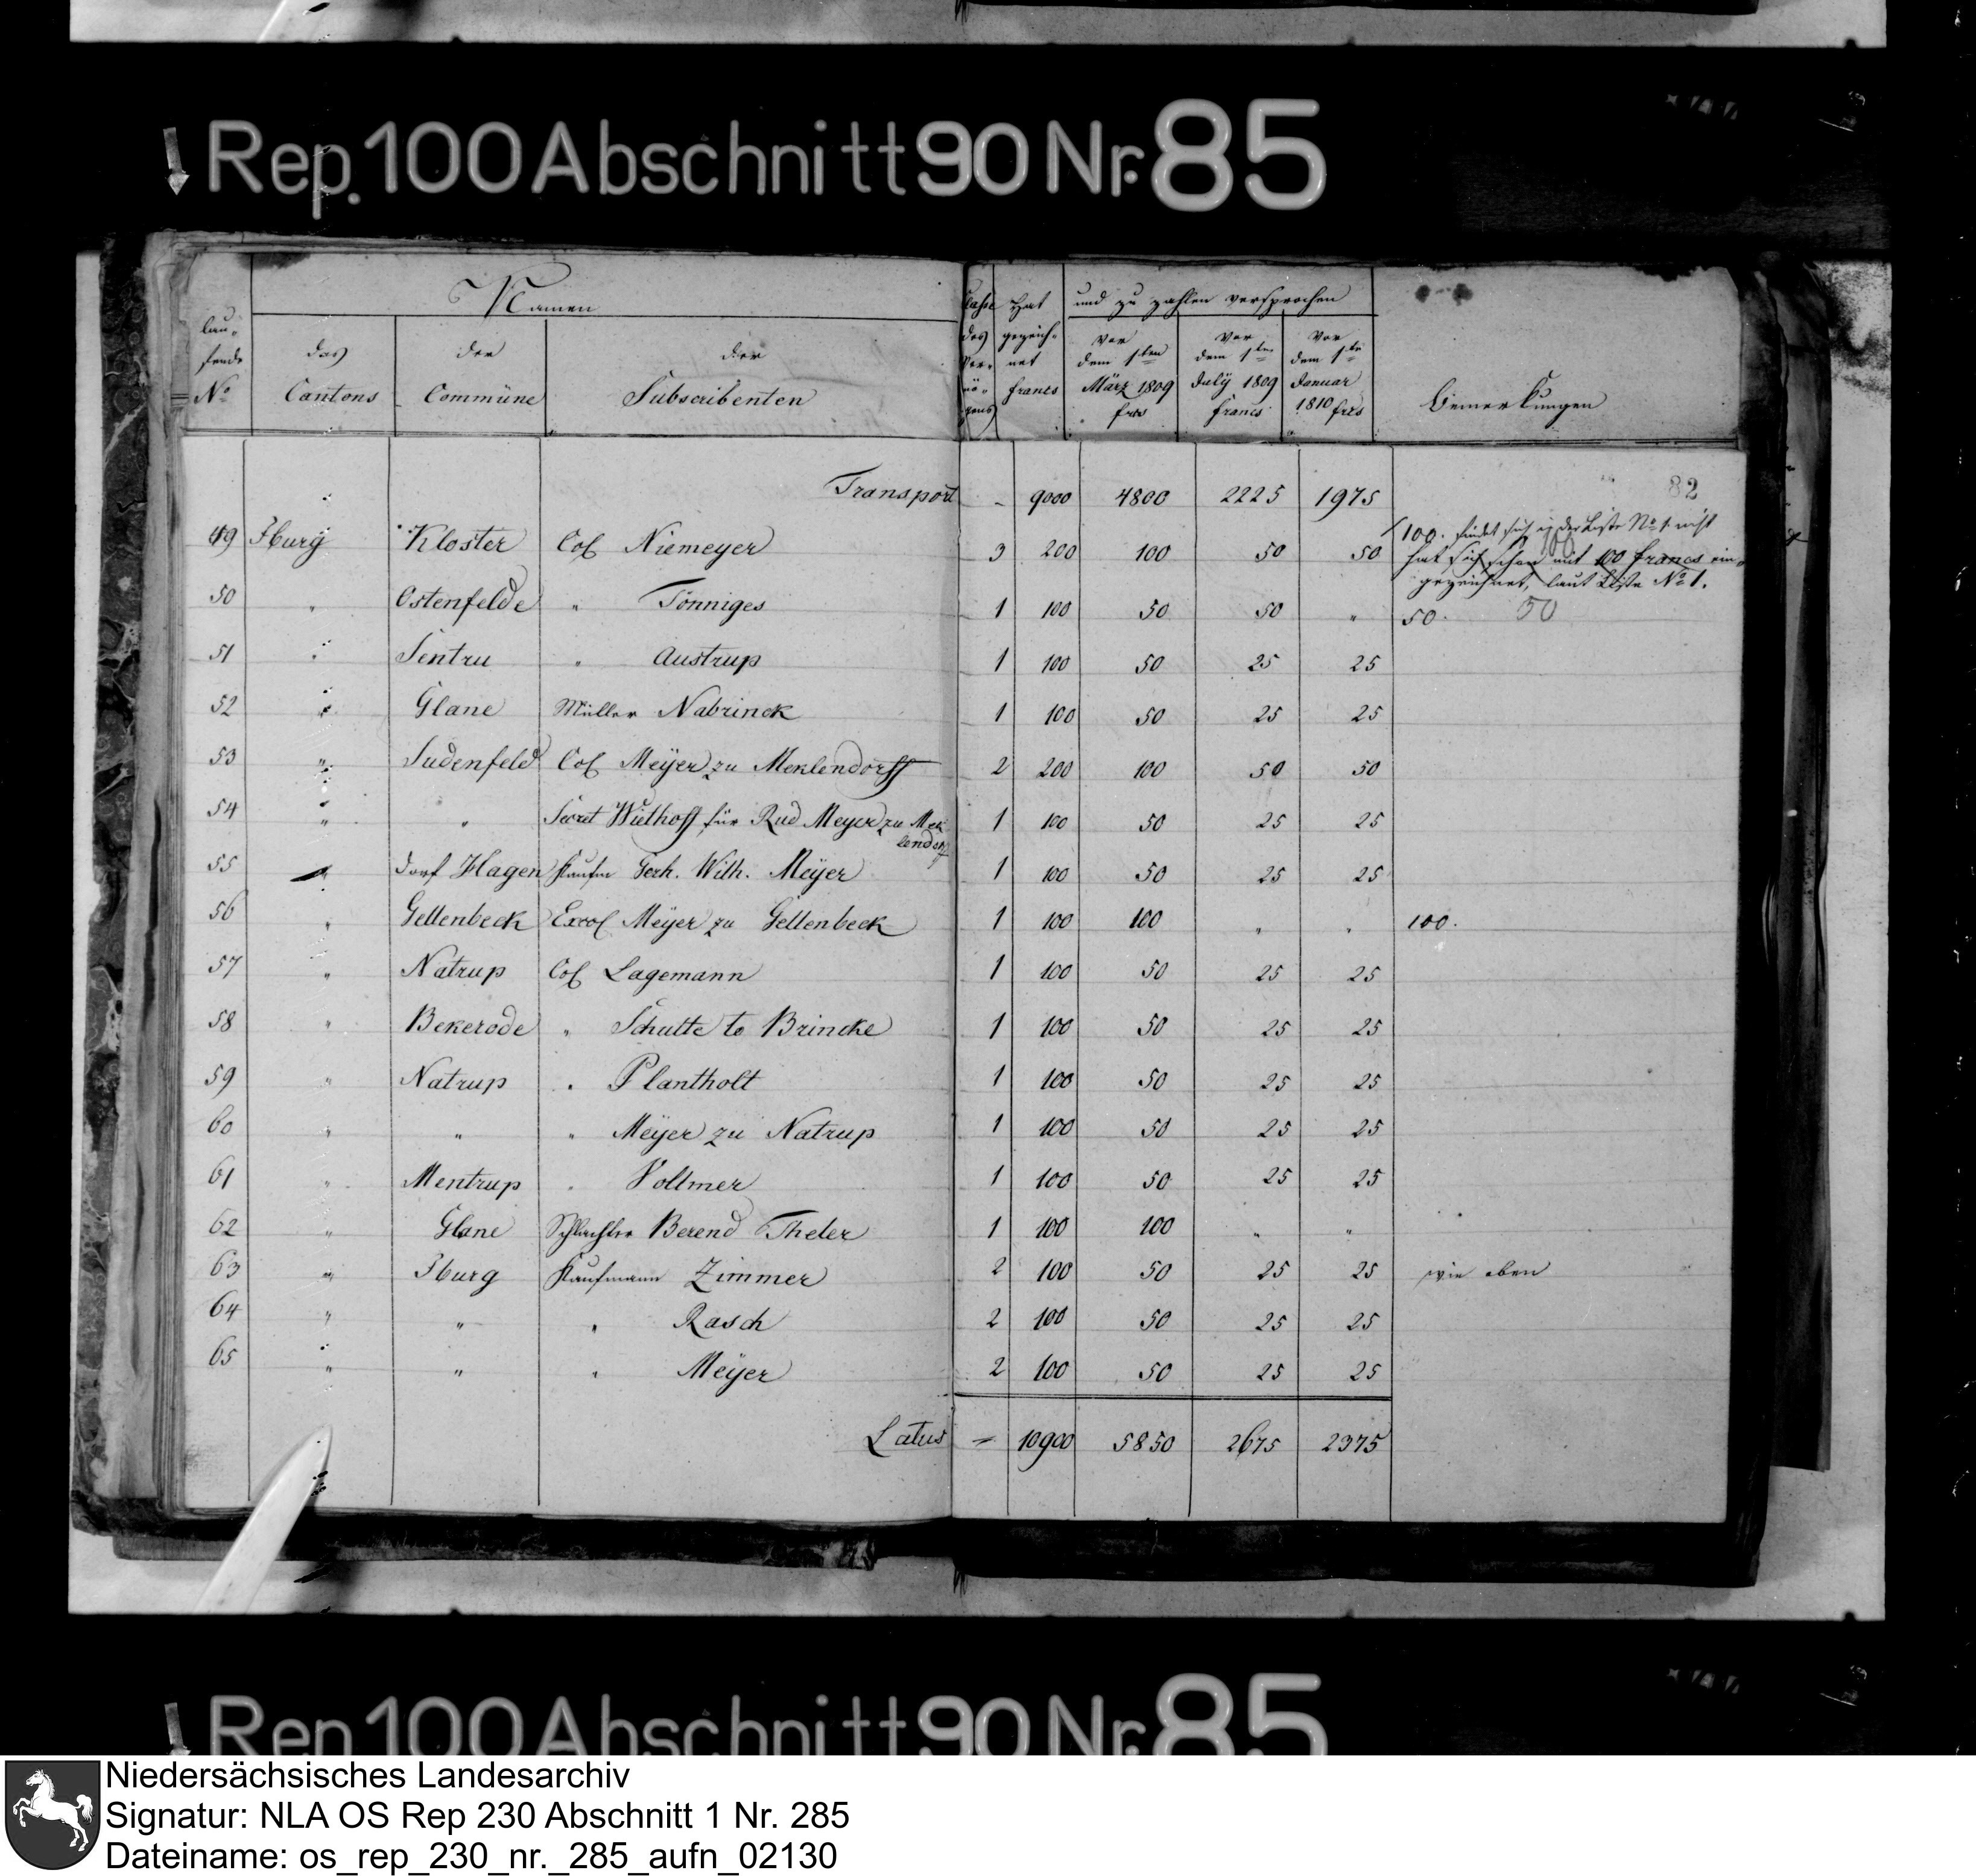 Rep. 100 Abschnitt 90 Nr. 85
Namen
lau-
fende
No
des
Cantons
der
Commüne
der
Subscribenten
Classe
des
Ver-
mö-
gens
Hat
gezeich-
net
francs
und zu zahlen versprochen
vor
dem 1ten
März 1809
frcs
vor
dem 1ten
July 1809
francs
vor
dem 1te
Januar
1810 frcs
Bemerkungen
82
Transport - 9000 4800 2225 1975
49 Iburg Kloster Col Niemeyer 3 200 100 50 50
100. findet sich in der Liste No 1. nicht
100
hat sich schon mit 100 francs ein-
gezeichnet, laut Liste No 1.
50 " Ostenfelde " Tönniges 1 100 50 50 " 50. 50
51 " Sentru " Austrup 1 100 50 25 25
52 " Glane Müller Nabrinck 1 100 50 25 25
53 " Sudenfeld Col Meÿer zu Meklendorff 2 200 100 50 50
54 " " Secret Wiethoff für Rud Meyer zu Mek
lendorff 1 100 50 25 25
55 " Dorf Hagen Kaufm Gerh. Wilh. Meÿer 1 100 50 25 25
56 " Gellenbeck Excol Meÿer zu Gellenbeck 1 100 100 " " 100.
57 " Natrup Col Lagemann 1 100 50 25 25
58 " Bekerode " Schulte to Brincke 1 100 50 25 25
59 " Natrup " Plantholt 1 100 50 25 25
60 " " " Meÿer zu Natrup 1 100 50 25 25
61 " Mentrup " Voltmer 1 100 50 25 25
62 " Glane Schlachter Berend Theler 1 100 100 " "
63 " Iburg Kaufmann Zimmer 2 100 50 25 25 wie oben
64 " " " Rasch 2 100 50 25 25
65 " " " Meÿer 2 100 50 25 25
Latus = 10900 5850 2675 2375
Rep. 100 Abschnitt 90 Nr. 85
Niedersächsisches Landesarchiv
Signatur: NLA OS Rep 230 Abschnitt 1 Nr. 285
Dateiname: os_rep_230_nr._285_aufn_02130